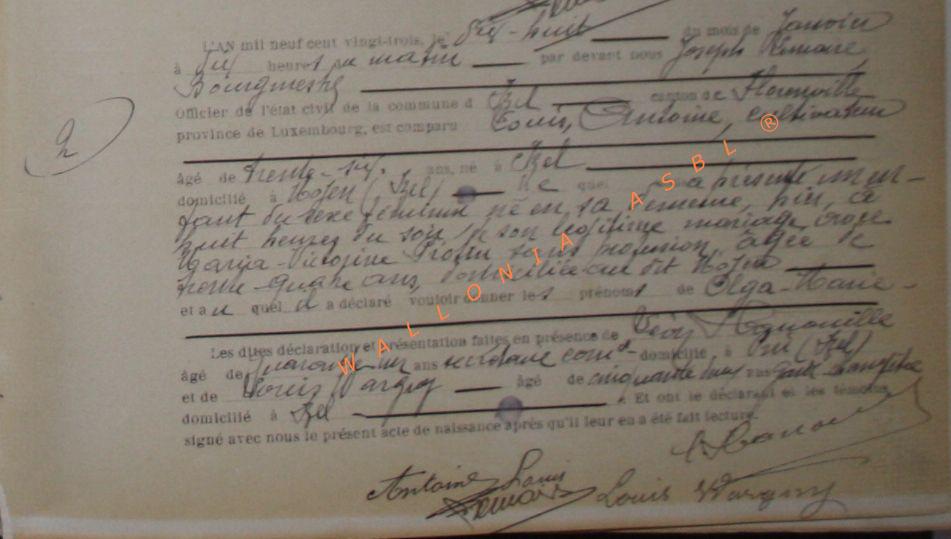 L'AN mil neuf cent vingt-trois, le dix-huit du mois de Janvier
à dix heures du matin par devant nous Joseph Lemaire
Bourgmestre
Officier de l'état civil de la commune d Izel canton de Florenville
province de Luxembourg, est comparu Louis, Antoine, cultivateur
2
âgé de trente-six ans, né à Izel
domicilié à Moyen (Izel) le quel a présenté un en-
fant du sexe féminin né en sa demeure, hier, à
huit heures du soir, de son légitime mariage avec
Maria-Victorine sans profession, âgée de
trente-quatre ans, domiciliée au dit Moyen
et au quel il a déclaré vouloir donner les prénoms de Olga-Marie-
Les dites déclaration et présentation faites en présence de Léon
âgé de quarante-un ans secrétaire com^l domicilié à Pin (Izel)
et de Louis Wargny âgé de cinquante deux ans garde champêtre
domicilié à Izel . Et ont le déclarant et les témoins
signé avec nous le présent acte de naissance après qu'il leur en a été fait lecture.
Antoine Louis
Lemaire Louis Wargny
WALLONIA ASBL ®